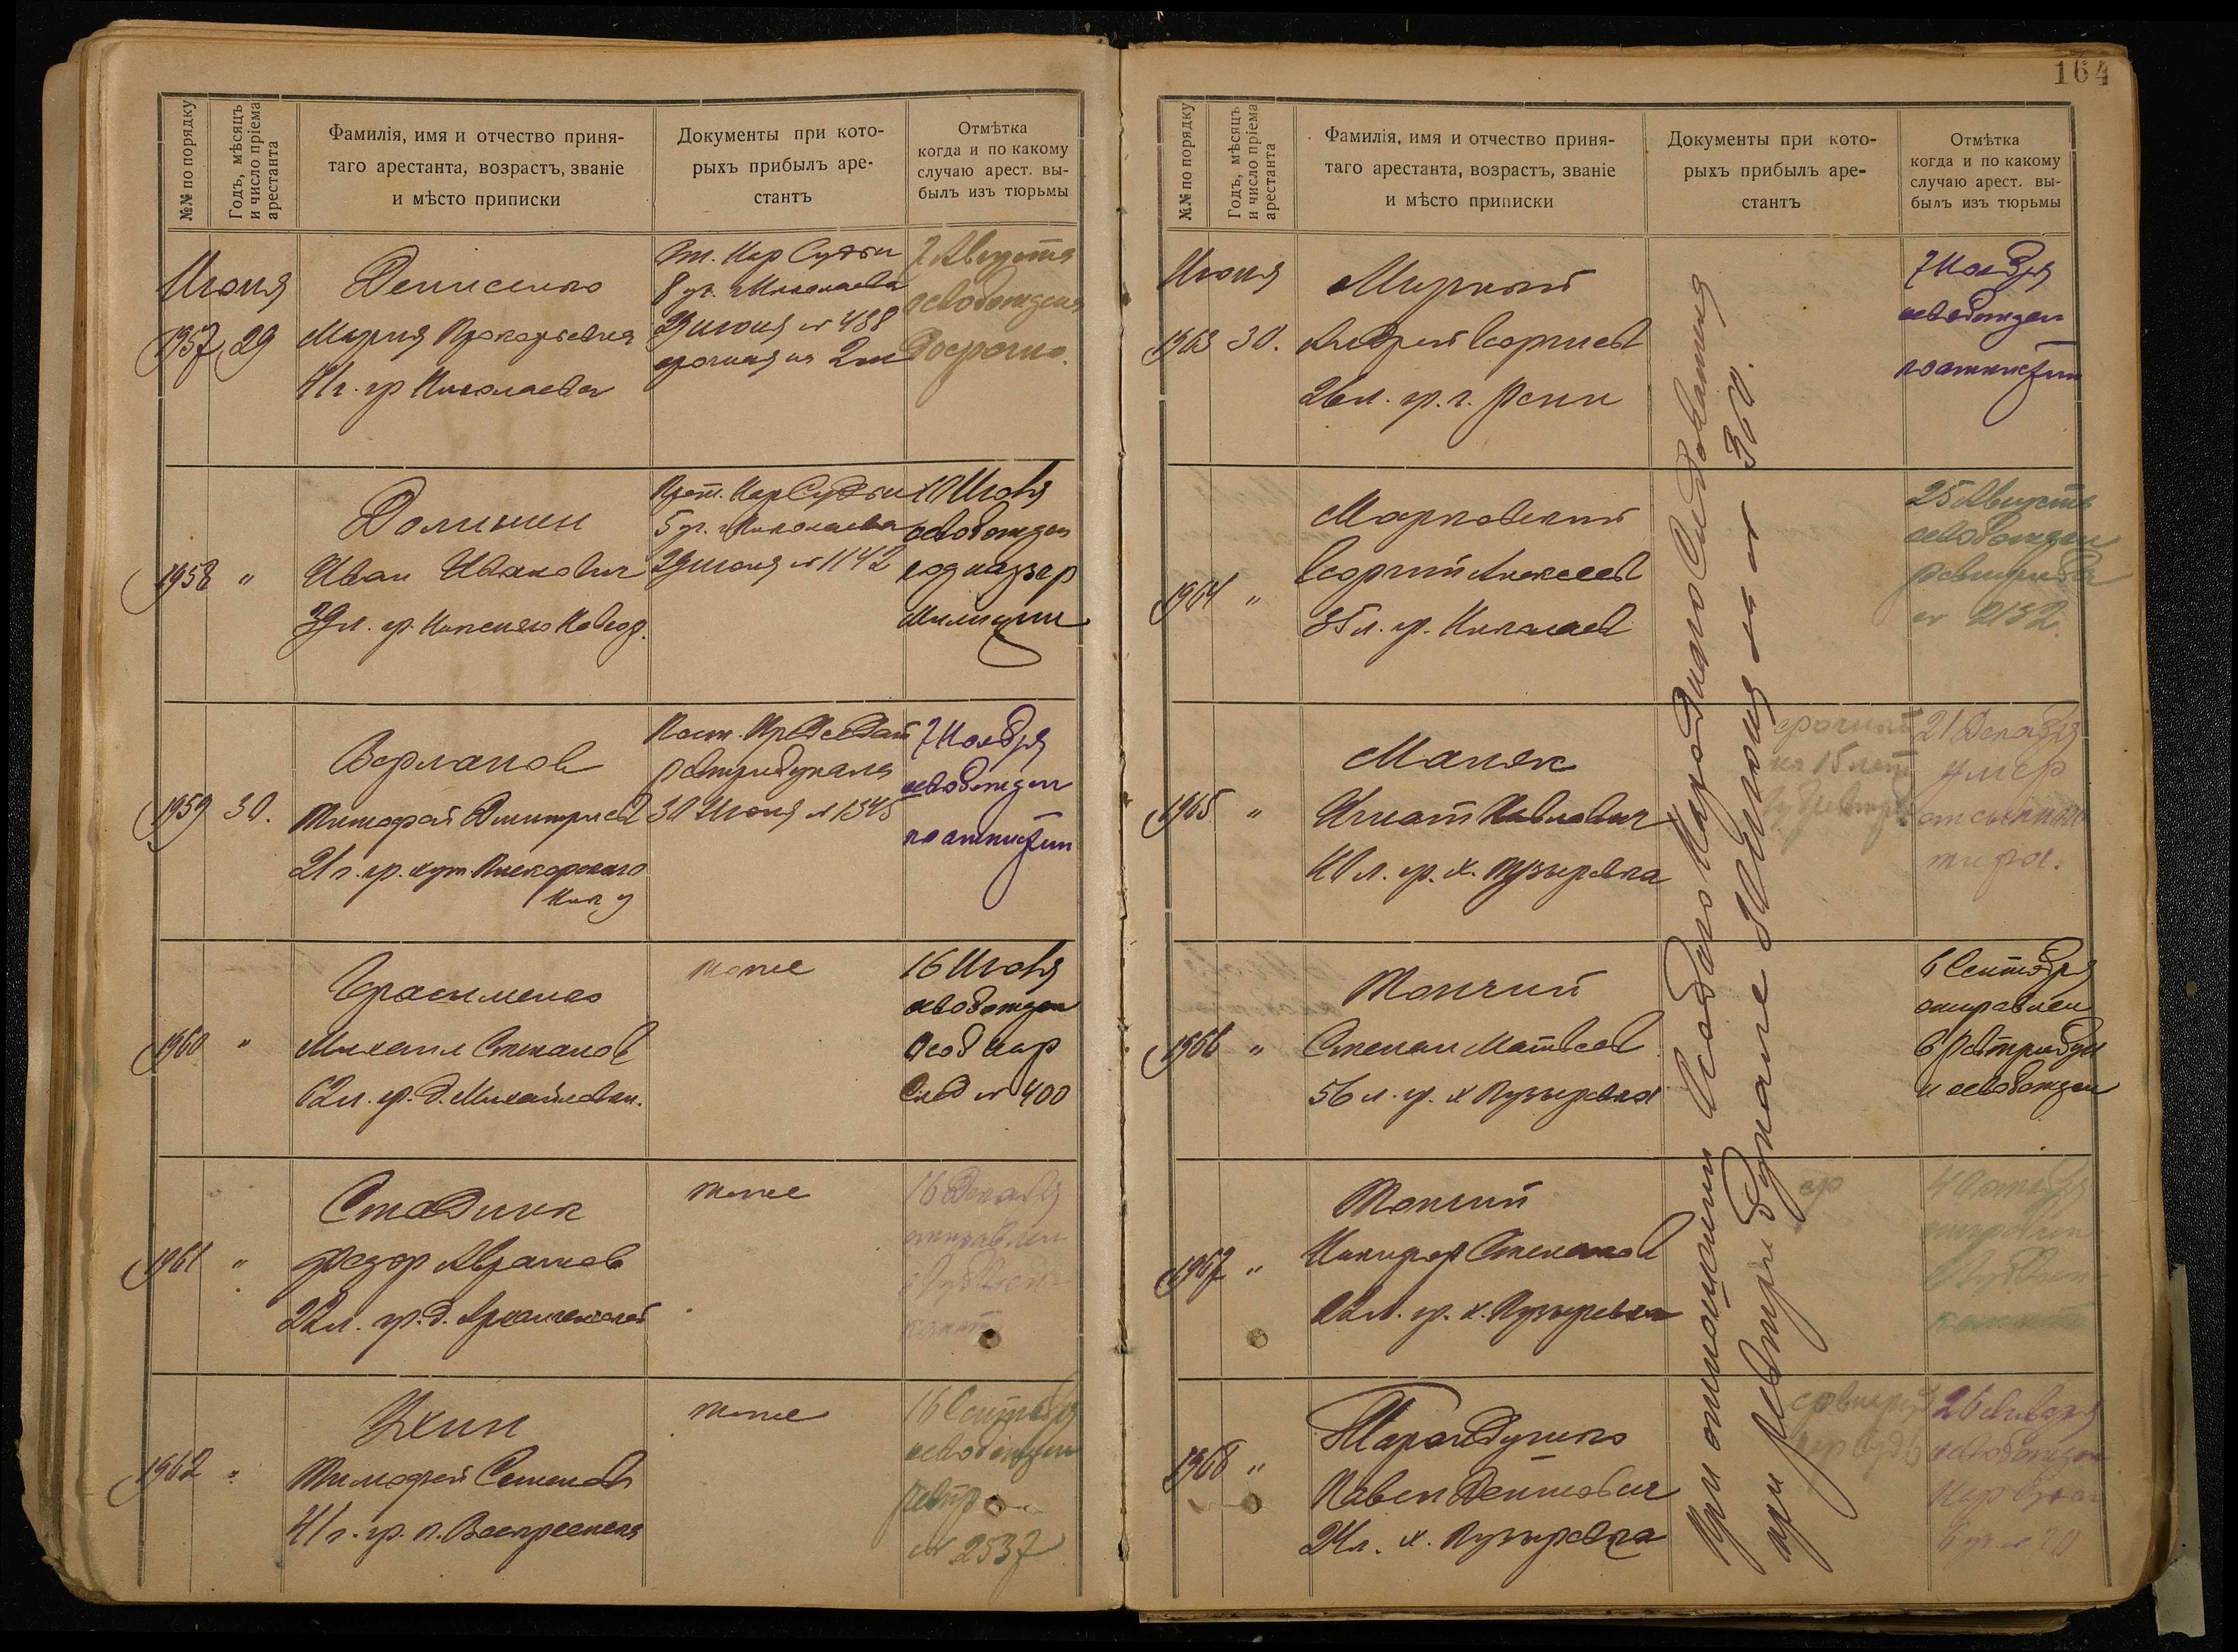 №№ по порядку
Годъ, мѣсяцъ
и число пріема
арестанта
Фамилія, имя и отчество приня-
таго арестанта, возрастъ, званіе
и мѣсто приписки
Документы при кото-
рыхъ прибылъ аре-
стантъ
Отмѣтка
когда и по какому
случаю арест. вы-
былъ изъ тюрьмы
Июня
1957 29
Денисенко
Мария Прокофьевна
41 г. гр Николаева
Нар Судьи
8 уч. г Николаева
29 июня № 488
срочная на 2
7 Августа
освобождена
Досрочно.
1958 "
Долинин
Иван Иванович
39 л. гр. Нижняго Новгор.
Прот. Нар Судьи
5 уч. г Николаева
29 июня № 1142
10 Июля
освобожден
под надзор
Милиции
1959 30.
Варланов
Тимофей Дмитриев
21 г. гр. хут.
Ник у
Пост. Председат
Ревтрибунала
30 Июня № 1345
7 Ноября
освобожден
по амнистии
1960 "
Герасименко
Михаил Степанов
62 л. гр. д. Михайловки.
тоже
16 Июля
освобожден
Особ Нар
След № 400
1961 "
Стадник
Федор Абрамов
22 л. гр. д.
тоже
16 Декабря
отправлен
1962 "
Ухин
Тимофей Семенов
41 г. гр. п. Воскресенска
тоже
16 Сентября
освобожден
Ревтр
№ 2537
164
№№ по порядку
Годъ, мѣсяцъ
и число пріема
арестанта
Фамилія, имя и отчество приня-
таго арестанта, возрастъ, званіе
и мѣсто приписки
Документы при кото-
рыхъ прибылъ аре-
стантъ
Отмѣтка
когда и по какому
случаю арест. вы-
былъ изъ тюрьмы
Июня
1963 30.
Мирный
Андрей Георгиев
26 л. гр. г. Рени
При отношении Особаго Народнаго Следователя
при Ревтрибунале 30 Июня за № 360.
7 Ноября
освобожден
по амнистии
1964 "
Марковский
Георгий Алексеев
35 л. гр. Николаев
25 Августа
освобожден
Ревтриб
№ 2132.
1965 "
Маняк
Игнат Павлович
40 л. гр. х. Пузыревка
срочный
на 15 лет
21 Декабря
умер
от сыпного
тифа.
1966 "
Топчий
Степан Матвеев
56 л. гр. х Пузыревка
6 Сентября
отправлен
в Ревтрибун
и освобожден
1967 "
Топчий
Никифор Степанов
22 л. гр. х. Пузыревка
ср
4 Октября
отправлен
1968 "
Тарандушко
Павел
24 л. х. Пузыревка
26 Января
освобожден
Нар Судьи
6 уч № 20